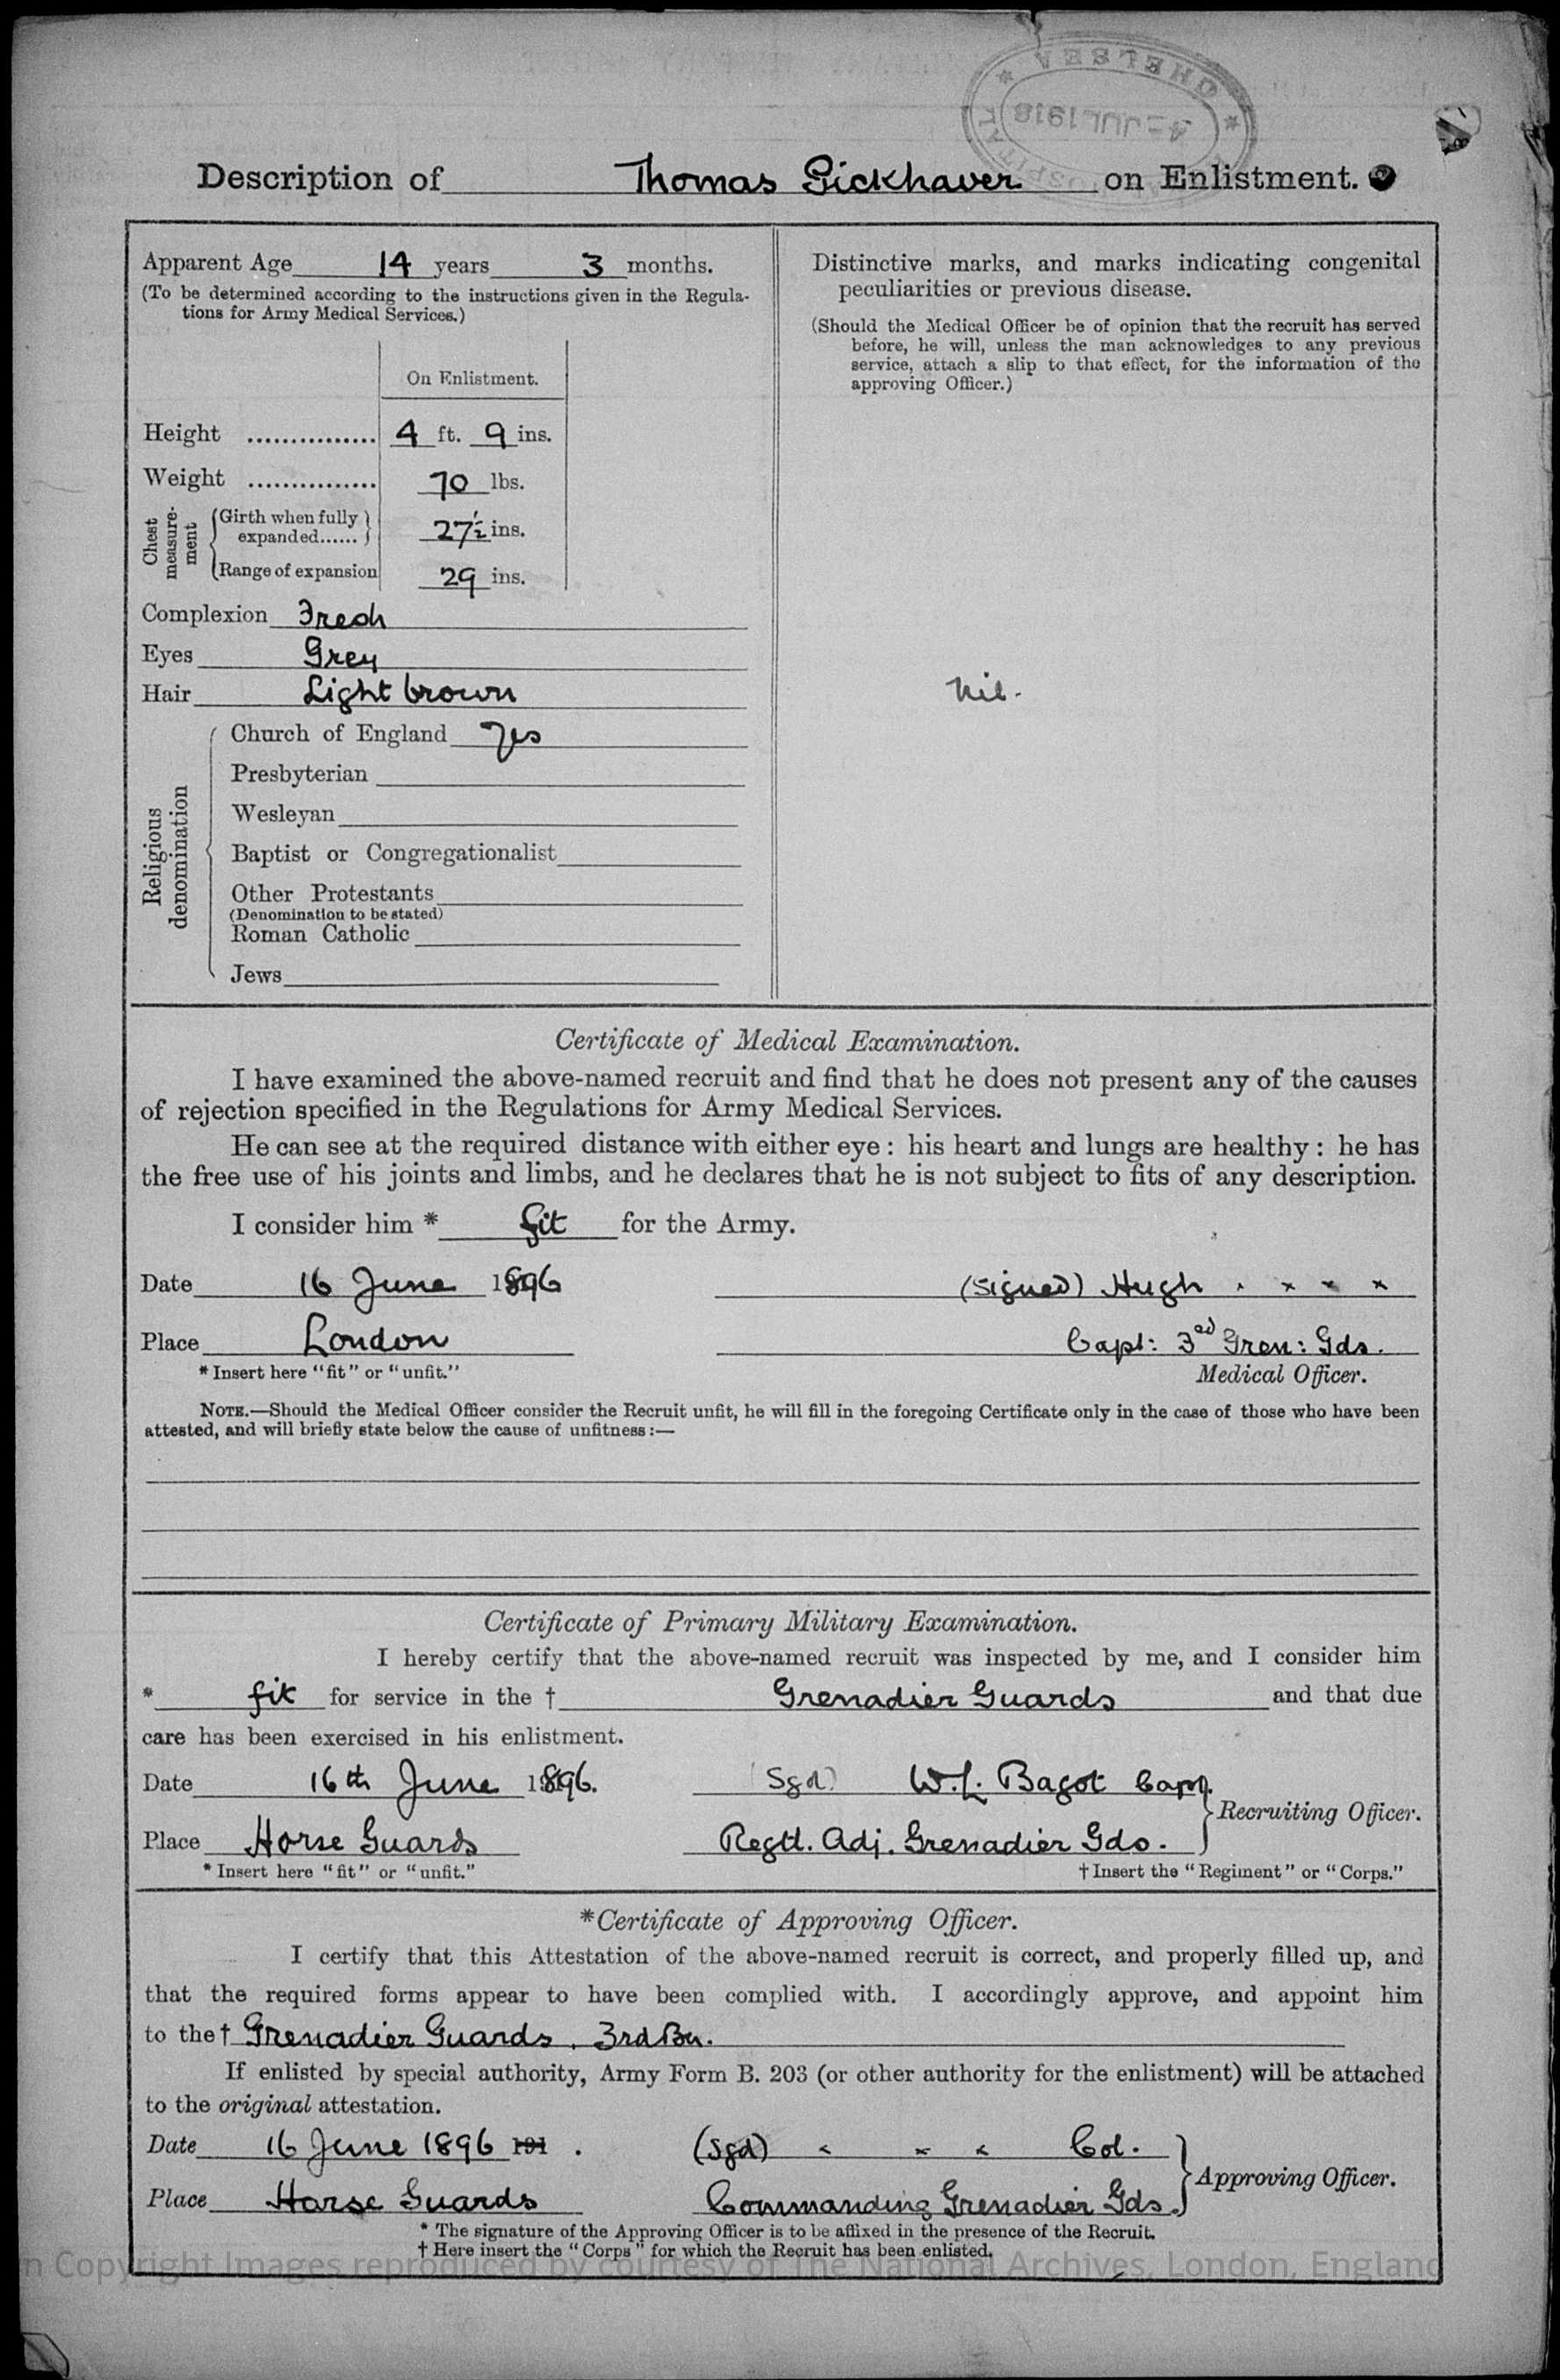 CHELSEA
4 - JUL 1918
Description of Thomas Sickhaver on Enlistment.
Apparent Age 14 years 3 months.
(To be determined according to the instructions given in the Regula-
tions for Army Medical Services.)
On Enlistment.
Height ............... 4 ft. 9 ins.
Weight ............... 70 lbs.
Chest measure-ment
Girth when fully
expanded...... 27½ ins.
Range of expansion 29 ins.
Complexion Fresh
Eyes Grey
Hair Light brown
Religious denomination
Church of England Yes
Presbyterian
Wesleyan
Baptist or Congregationalist
Other Protestants
(Denomination to be stated)
Roman Catholic
Jews
Distinctive marks, and marks indicating congenital
peculiarities or previous disease.
(Should the Medical Officer be of opinion that the recruit has served
before, he will, unless the man acknowledges to any previous
service, attach a slip to that effect, for the information of the
approving Officer.)
Nil.
Certificate of Medical Examination.
I have examined the above-named recruit and find that he does not present any of the causes
of rejection specified in the Regulations for Army Medical Services.
He can see at the required distance with either eye : his heart and lungs are healthy : he has
the free use of his joints and limbs, and he declares that he is not subject to fits of any description.
I consider him * fit for the Army.
Date 16 June 1896 (Signed) Hugh
Place London Capt: 3rd Gren: Gds.
* Insert here "fit" or "unfit." Medical Officer.
NOTE.—Should the Medical Officer consider the Recruit unfit, he will fill in the foregoing Certificate only in the case of those who have been
attested, and will briefly state below the cause of unfitness :—
Certificate of Primary Military Examination.
I hereby certify that the above-named recruit was inspected by me, and I consider him
* fit for service in the † Grenadier Guards and that due
care has been exercised in his enlistment.
Date 16th June 1896. (Sgd) W.L. Bagot Capt.
Recruiting Officer.
Place Horse Guards Regtl. Adj. Grenadier Gds.
* Insert here "fit" or "unfit." † Insert the "Regiment" or "Corps."
*Certificate of Approving Officer.
I certify that this Attestation of the above-named recruit is correct, and properly filled up, and
that the required forms appear to have been complied with. I accordingly approve, and appoint him
to the† Grenadier Guards. 3rd Bn.
If enlisted by special authority, Army Form B. 203 (or other authority for the enlistment) will be attached
to the original attestation.
Date 16 June 1896 191 . (Sgd) " " " Col.
Approving Officer.
Place Horse Guards Commanding Grenadier Gds.
* The signature of the Approving Officer is to be affixed in the presence of the Recruit.
† Here insert the "Corps" for which the Recruit has been enlisted.
n Copyright Images reproduced by courtesy of The National Archives, London, England